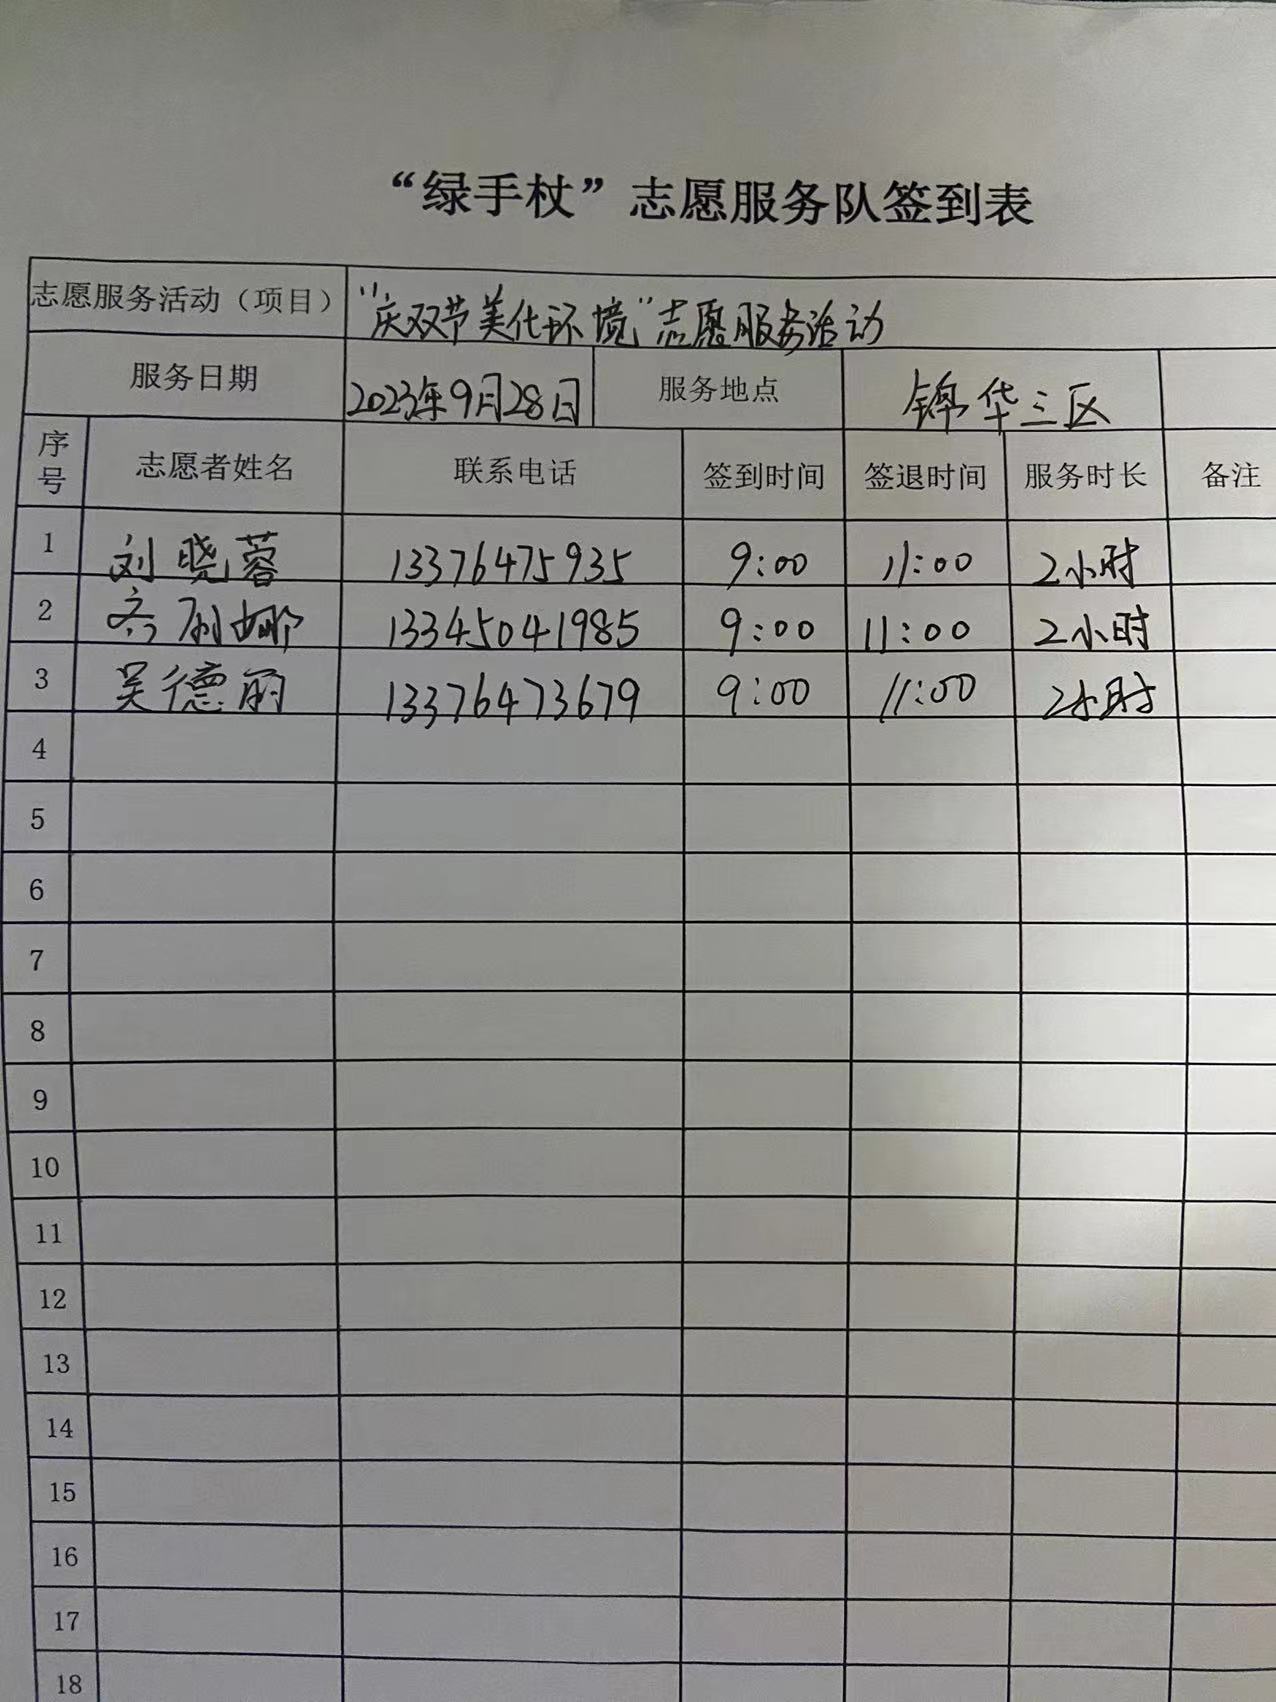 “绿手杖”志愿服务队签到表
志愿服务活动（项目） “庆双节美化环境”志愿服务活动
服务日期 2023年9月28日 服务地点 锦华三区
序号 志愿者姓名 联系电话 签到时间 签退时间 服务时长 备注
1 刘晓蓉 13376475935 9:00 11:00 2小时
2 齐丽娜 13345041985 9:00 11:00 2小时
3 吴德丽 13376473679 9:00 11:00 2小时
4
5
6
7
8
9
10
11
12
13
14
15
16
17
18